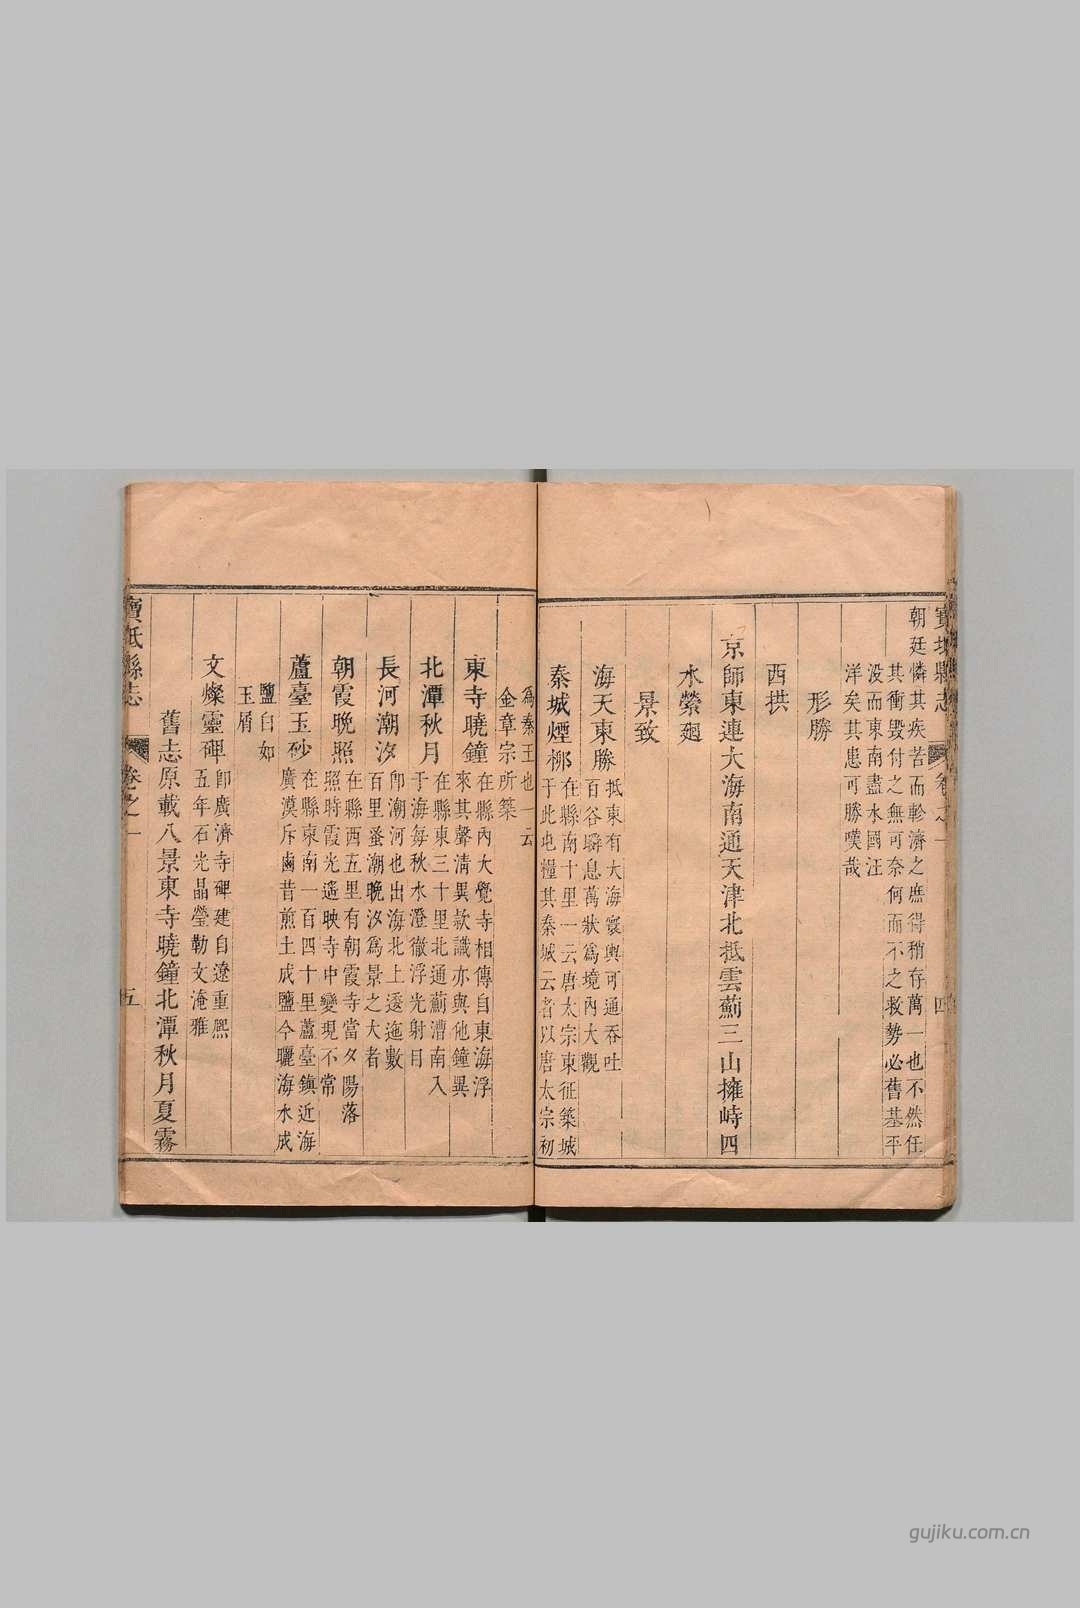 寶坻縣志
卷之一
四
朝廷憐其疾苦而軫濟之庶得稍存萬一也不然任
其衝毀付之無可奈何而不之救勢必舊基平
没而東南盡水國汪
洋矣其患可勝嘆哉
形勝
西拱
京師東連大海南通天津北抵雲薊三山擁峙四
水縈廻
景致
海天東勝
抵東有大海寰輿可通吞吐
百谷瞬息萬狀爲境內大觀
秦城煙柳
在縣南十里一云唐太宗東征築城
于此屯糧其秦城云者以唐太宗初
爲秦王也一云
金章宗所築
東寺曉鐘
在縣內大覺寺相傳自東海浮
來其聲清異款識亦與他鐘異
北潭秋月
在縣東三十里北通薊漕南入
于海每秋水澄徹浮光射目
長河潮汐
卽潮河也出海北上逶迤數
百里蚤潮晚汐爲景之大者
朝霞晚照
在縣西五里有朝霞寺當夕陽落
照時霞光遙映寺中變現不常
蘆臺玉砂
在縣東南一百四十里蘆臺鎮近海
廣漠斥鹵昔煎土成鹽今曬海水成
鹽白如
玉屑
文燦靈碑
卽廣濟寺碑建自遼重熙
五年石光晶瑩勒文淹雅
舊志原載八景東寺曉鐘北潭秋月夏霧
寶坻縣志
卷之一
五
gujiku.com.cn